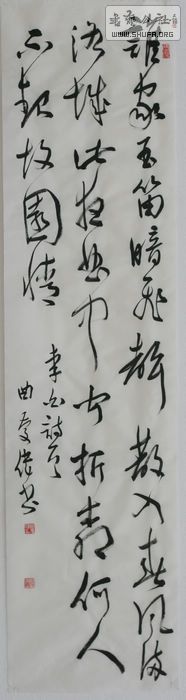 誰家玉笛暗飛聲散入春風滿
洛城此夜曲中闻折柳何人
不起故園情
李白詩
曲
書
WWW.SHUFA.ORG